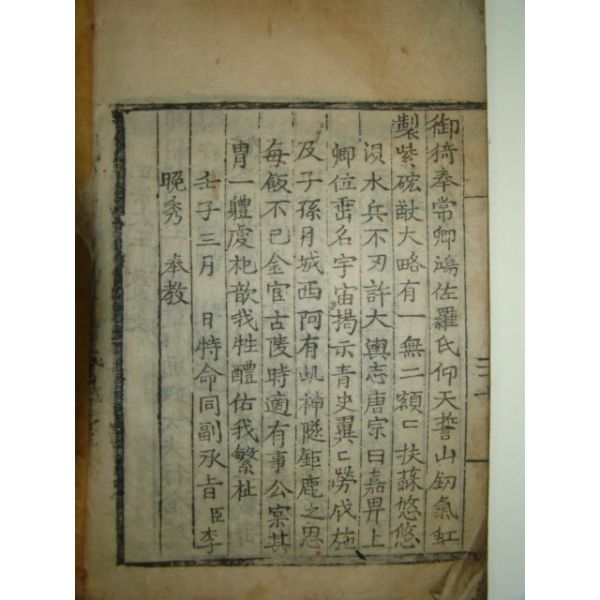 御猗奉常卿鴻佐羅氏仰天誓山釼氣虹
製紫硡猷大略有一無二額〻扶蘇悠悠
浿水兵不刃許大輿志唐宗曰嘉畀上
卿位垂名宇宙揭示青史翼〻勞伐施
及子孫月城西阿有屼神隧鉅鹿之思
每飯不已金官古陵時適有事公寀其
胄一軆虔祀歆我牲醴佑我繁祉
壬子三月 日特命同副承旨臣李
晚秀 奉教